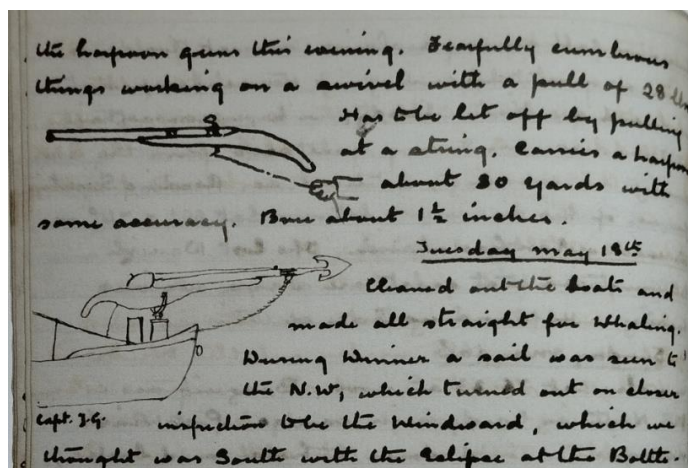 the harpoon guns this evening. Fearfully cumbrous
things working on a swivel with a pull of 28 lbs
Has to be let off by pulling
at a string. Carries a harpoon
about 30 yards with
some accuracy. Bore about 1½ inches.
Tuesday May 18th
Cleaned out the boats and
made all straight for Whaling.
During Dinner a sail was seen to
the N.W, which turned out on closer
Capt. J.G.
inspection to be the Windward, which we
thought was South with the Eclipse at the Bottle-